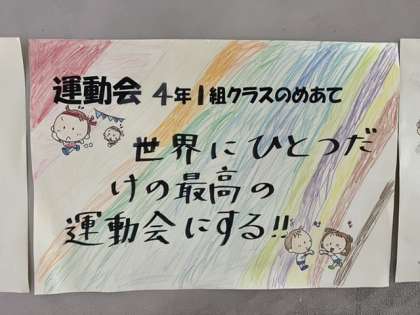 運動会 4年1組クラスのめあて
世界にひとつだ
けの最高の
運動会にする!!